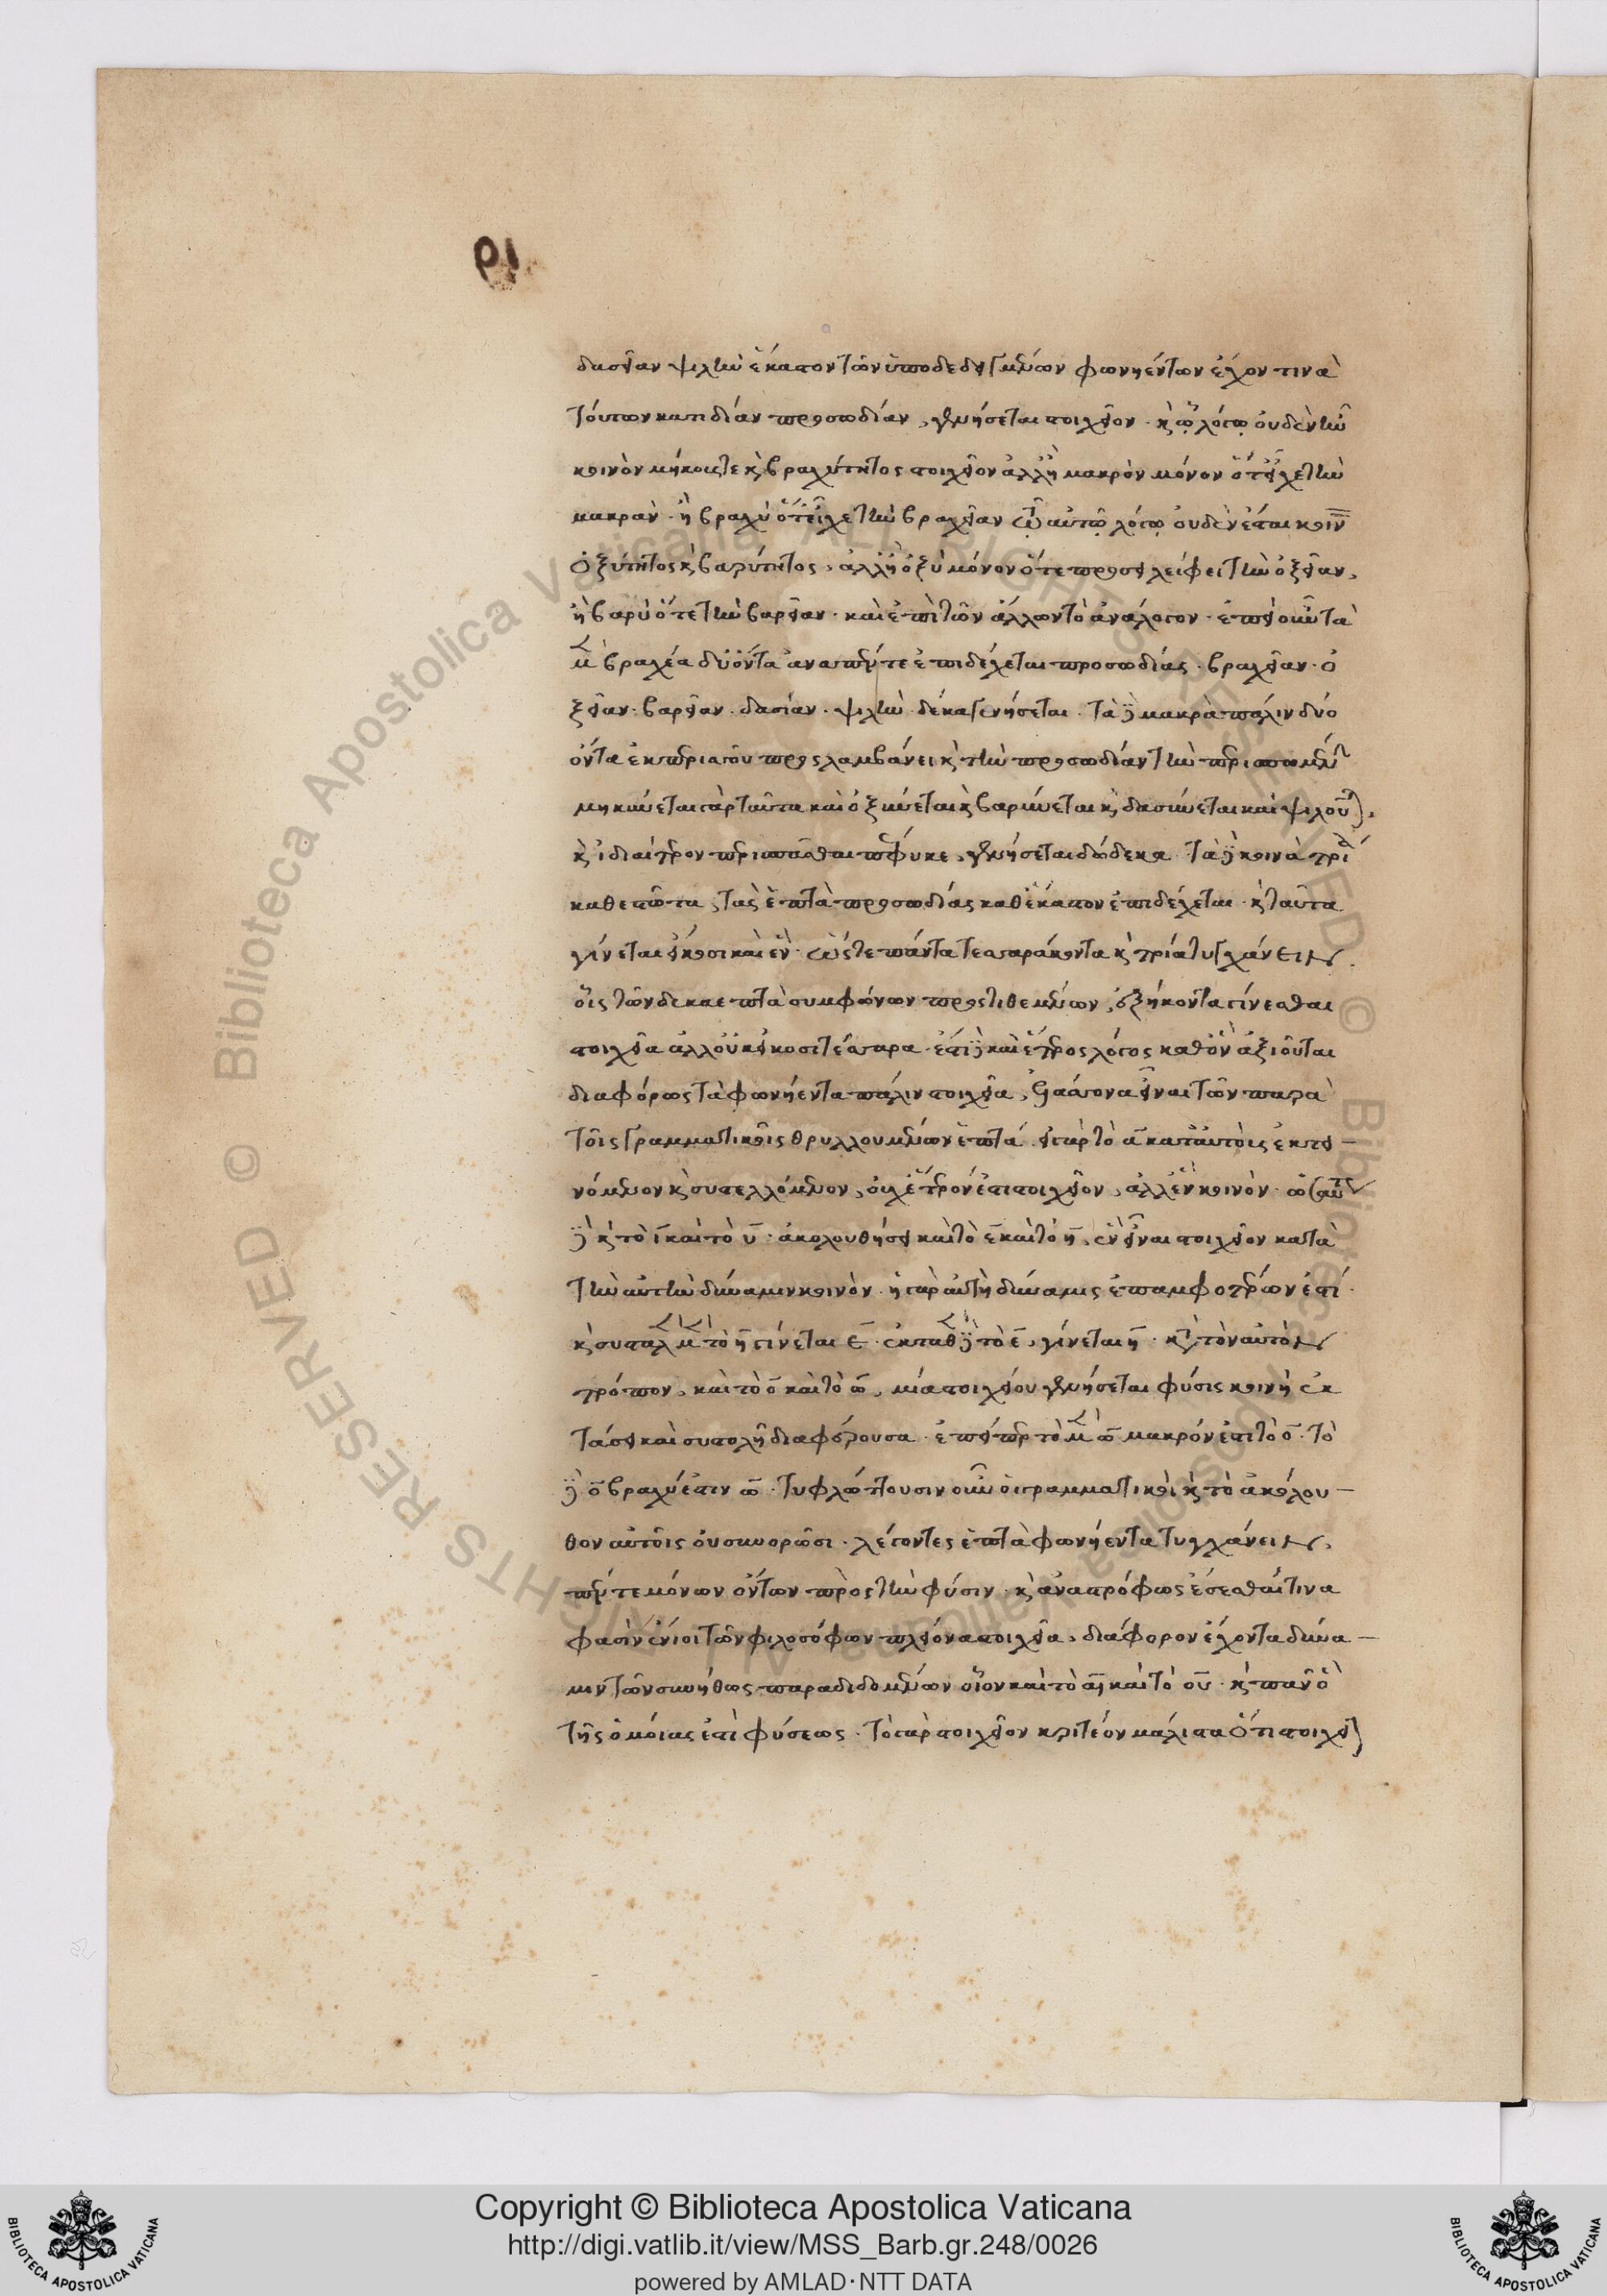 ρι
δασεῖαν ψιλὴν ἕκαστον τῶν ὑποδεδειγμένων φωνηέντων ἔχον τινὰ
τούτων κατ ἰδίαν προσωδίαν, γενήσεται στοιχεῖον · κ τῷ λόγῳ οὐδὲν ἦν
κοινὸν μήκους τε κ βραχύτητος στοιχεῖον ἀλλ ἢ μακρὸν μόνον ὅτ εἶχε τὴν
μακρὰν · ἢ βραχὺ ὅτε εἶχε τὴν βραχεῖαν τῷ αὐτῷ λόγῳ οὐδὲν ἔσται κοινὸν
ὀξύτητος κ βαρύτητος, ἀλλ ἢ ὀξὺ μόνον ὅτε προσειλείφει τὴν ὀξεῖαν,
ἢ βαρὺ ὅτε τὴν βαρεῖαν · καὶ ἐπὶ τῶν ἄλλων τὸ ἀνάλογον · ἐπεὶ οὖν τὰ
μὲν βραχέα δύ ὄντα ἀνα πέντε ἐπιδέχεται προσωδίας · βραχεῖαν · ὀ
ξεῖαν · βαρεῖαν · δασίαν · ψιλὴν δέκα γενήσεται · τὰ δὲ μακρὰ πάλιν δύο
ὄντα ἐκ περισσοῦ προσλαμβάνει κ τὴν προσωδίαν τὴν περισπωμένην
μηκύνεται γὰρ ταῦτα καὶ ὀξύνεται κ βαρύνεται κ δασύνεται καὶ ψιλοῦται,
κ ἰδιαίτερον περισπᾶσθαι πέφυκε, γενήσεται δώδεκα · τὰ δὲ κοινὰ τρία
καθεστῶτα, τὰς ἑπτὰ προσωδίας καθ ἕκαστον ἐπιδέχεται · κ ταῦτα
γίνεται εἴκοσι καὶ ἓν · ὥστε πάντα τεσσαράκοντα κ τρία τυγχάνειν
οἷς τῶν δεκαεπτὰ συμφώνων προστιθεμένων, ἑξήκοντα γίνεσθαι
στοιχεῖα ἀλλ οὐκ εἰκοσιτέσσαρα · ἔστι δὲ καὶ ἕτερος λόγος καθ ὃν ἀξιοῦται
διαφόρως τὰ φωνήεντα πάλιν στοιχεῖα, ἐλάσσονα εἶναι τῶν παρὰ
τοῖς γραμματικοῖς θρυλλουμένων ἑπτά · εἰ γὰρ τὸ α κατ αὐτοὺς ἐκτει–
νόμενον κ συστελλόμενον, οὐχ ἕτερόν ἐστι στοιχεῖον, ἀλλ ἓν κοινὸν · ὡσαύτως
δὲ κ τὸ ι καὶ τὸ υ · ἀκολουθήσει καὶ τὸ ε καὶ τὸ η, ἓν εἶναι στοιχεῖον κατὰ
τὴν αὐτὴν δύναμιν κοινὸν · ἡ γὰρ αὐτὴ δύναμις ἐπ ἀμφοτέρων ἐστί ·
κ συσταλὲν μὲν τὸ η γίνεται ε · ἐκταθὲν δὲ τὸ ε, γίνεται η · κτ τὸν αὐτὸν
τρόπον, καὶ τὸ ο καὶ τὸ ω, μία στοιχείου γενήσεται φύσις κοινὴ ἐκ
τάσει καὶ συστολῇ διαφέρουσα · ἐπείπερ τὸ μὲν ω μακρόν ἐστι τὸ ο · τὸ
δὲ ο βραχύ ἐστιν ω · τυφλώττουσιν οὖν οἱ γραμματικοὶ κ τὸ ἀκόλου–
θον αὐτοῖς οὐ συνορῶσι · λέγοντες ἑπτὰ φωνήεντα τυγχάνειν,
πέντε μόνων ὄντων πρὸς τὴν φύσιν · κ ἀναστρόφως ἔσεσθαί τινα
φασὶν ἔνιοι τῶν φιλοσόφων πλείονα στοιχεῖα, διάφορον ἔχοντα δύνα–
μιν τῶν συνήθως παραδιδομένων οἷον καὶ τὸ αι καὶ τὸ ου · κ πᾶν ὃ
τῆς ὁμοίας ἐστὶ φύσεως · τὸ γὰρ στοιχεῖον κριτέον μάλιστα ὅτι στοιχεῖον
Copyright © Biblioteca Apostolica Vaticana
http://digi.vatlib.it/view/MSS_Barb.gr.248/0026
powered by AMLAD·NTT DATA